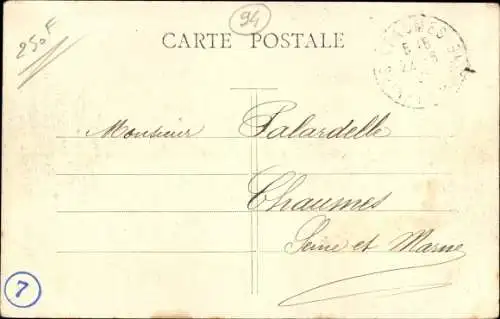 250F
94
CARTE POSTALE
Monsieur Palardelle
Chaumes
Seine et Marne
7